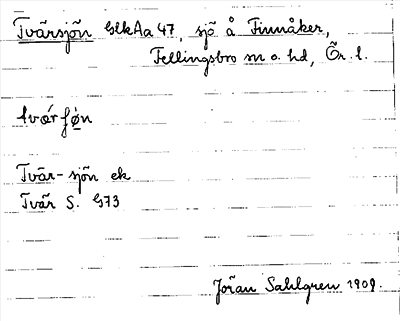 Tvärsjön GlkAa 47, sjö å Finnåker,
Fellingsbro sn o. hd, Ör. l.
Tvär-sjön ek
Tvär S. G73
Jöran Sahlgren 1909.